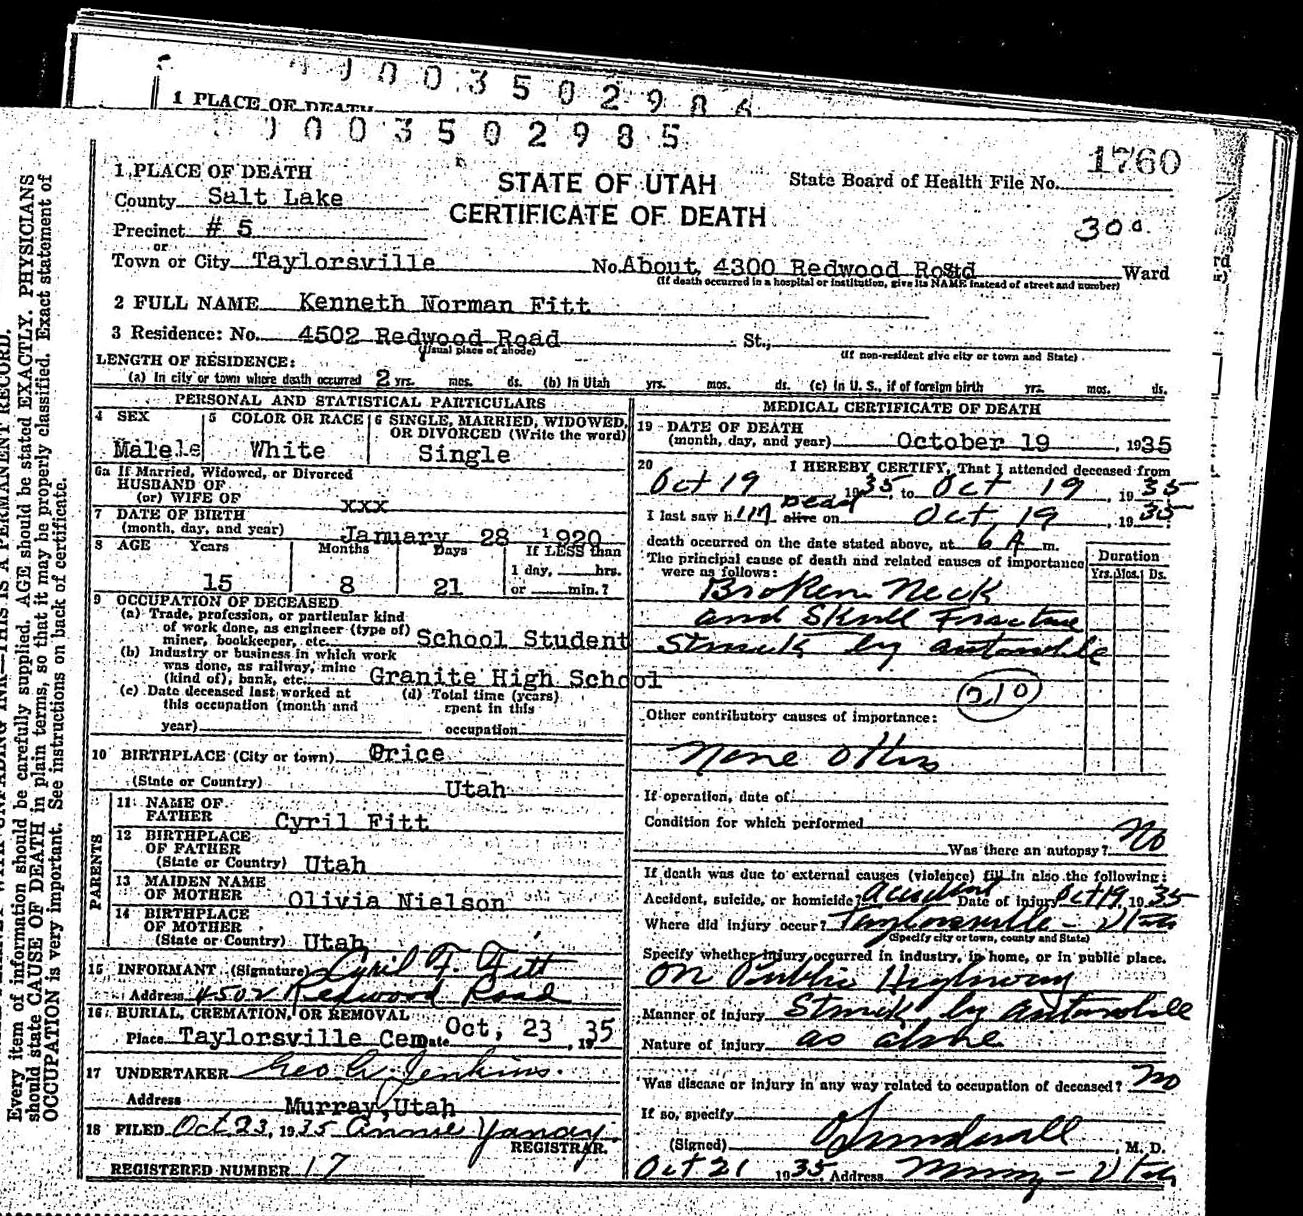 0 0 0 3 5 0 2 9 8
1 PLACE OF DEATH
0 0 0 3 5 0 2 9 8 5
1760
1 PLACE OF DEATH
STATE OF UTAH
CERTIFICATE OF DEATH
State Board of Health File No.
County Salt Lake
300
Precinct # 5
or
Town or City Taylorsville No. About 4300 Redwood Road Ward
(If death occurred in a hospital or institution, give its NAME instead of street and number)
2 FULL NAME Kenneth Norman Fitt
3 Residence: No. 4502 Redwood Road St.,
(Usual place of abode) (If non-resident give city or town and State)
LENGTH OF RESIDENCE:
(a) In city or town where death occurred 2 yrs. mos. ds. (b) In Utah yrs. mos. ds. (c) in U. S., if of foreign birth yrs. mos. ds.
PERSONAL AND STATISTICAL PARTICULARS
4 SEX
Male
5 COLOR OR RACE
White
6 SINGLE, MARRIED, WIDOWED, OR DIVORCED (Write the word)
Single
6a If Married, Widowed, or Divorced
HUSBAND OF
(or) WIFE OF xxx
7 DATE OF BIRTH
(month, day, and year) January 28 1920
8 AGE Years Months Days If LESS than
1 day, hrs.
15 8 21 or min.?
9 OCCUPATION OF DECEASED
(a) Trade, profession, or particular kind
of work done, as engineer (type of)
miner, bookkeeper, etc. School Student
(b) Industry or business in which work
was done, as railway, mine
(kind of), bank, etc. Granite High School
(c) Date deceased last worked at
this occupation (month and
year)
(d) Total time (years)
spent in this
occupation
10 BIRTHPLACE (City or town) Price
(State or Country) Utah
PARENTS
11 NAME OF
FATHER Cyril Fitt
12 BIRTHPLACE
OF FATHER
(State or Country) Utah
13 MAIDEN NAME
OF MOTHER Olivia Nielson
14 BIRTHPLACE
OF MOTHER
(State or Country) Utah
15 INFORMANT (Signature) Cyril F. Fitt
Address 4502 Redwood Road
16 BURIAL, CREMATION, OR REMOVAL
Place Taylorsville Cem Date Oct, 23, 1935
17 UNDERTAKER Geo A Jenkins
Address Murray, Utah
18 FILED Oct 23, 1935 Annie Yancey
REGISTRAR.
REGISTERED NUMBER 17
MEDICAL CERTIFICATE OF DEATH
19 DATE OF DEATH
(month, day, and year) October 19, 1935
20 I HEREBY CERTIFY, That I attended deceased from
Oct 19 1935 to Oct 19, 1935
Dead
I last saw him alive on Oct, 19, 1935
death occurred on the date stated above, at 6 A m.
The principal cause of death and related causes of importance
were as follows:
Duration
Yrs. Mos. Ds.
Broken Neck
and Skull Fracture
Struck by automobile
210
Other contributory causes of importance:
None other
If operation, date of
Condition for which performed
Was there an autopsy? No
If death was due to external causes (violence) fill in also the following:
Accident, suicide, or homicide? accident Date of injury Oct 19, 1935
Where did injury occur? Taylorsville - Utah
(Specify city or town, county and State)
Specify whether injury occurred in industry, in home, or in public place.
On Public Highway
Manner of injury Struck by automobile
Nature of injury as above
Was disease or injury in any way related to occupation of deceased? No
If so, specify
(Signed) M. D.
Oct 21 1935 Address Murray - Utah
Every item of information should be carefully supplied. AGE should be stated EXACTLY. PHYSICIANS
should state CAUSE OF DEATH in plain terms, so that it may be properly classified. Exact statement of
OCCUPATION is very important. See instructions on back of certificate.